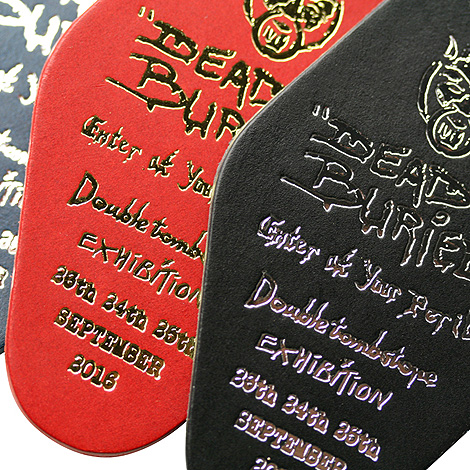 "DEAD
BURIE
Enter at Your
Doubletombsto
EXHIBITION
23th 24th 25th
SEPTEMBER
2016
"DEAD
BURIED
Enter at Your Peril
Doubletombstone
EXHIBITION
23th 24th 25th
SEPTEMBER